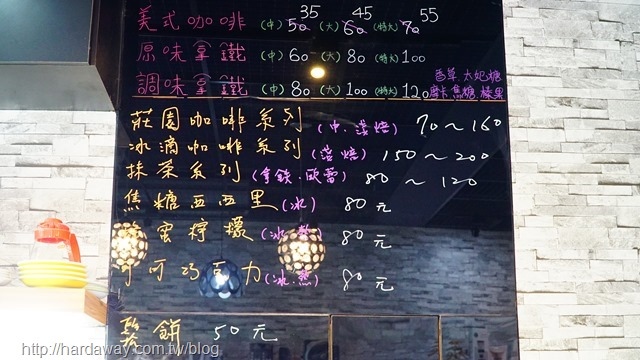 35 45 55
美式咖啡 (中) 50 (大) 60 (特大) 70
原味拿鐵 (中) 60 (大) 80 (特大) 100
香草.太妃糖
調味拿鐵 (中) 80 (大) 100 (特大) 120 摩卡.焦糖.榛果
莊園咖啡系列 (中.淺焙) 70~160
冰滴咖啡系列 (淺焙) 150~200
抹茶系列 (拿鐵.歐蕾) 80~120
焦糖亞西里 (冰) 80元
蜜檸檬 (冰.熱) 80元
可可巧克力 (冰.熱) 80元
鬆餅 50元
http://hardaway.com.tw/blog